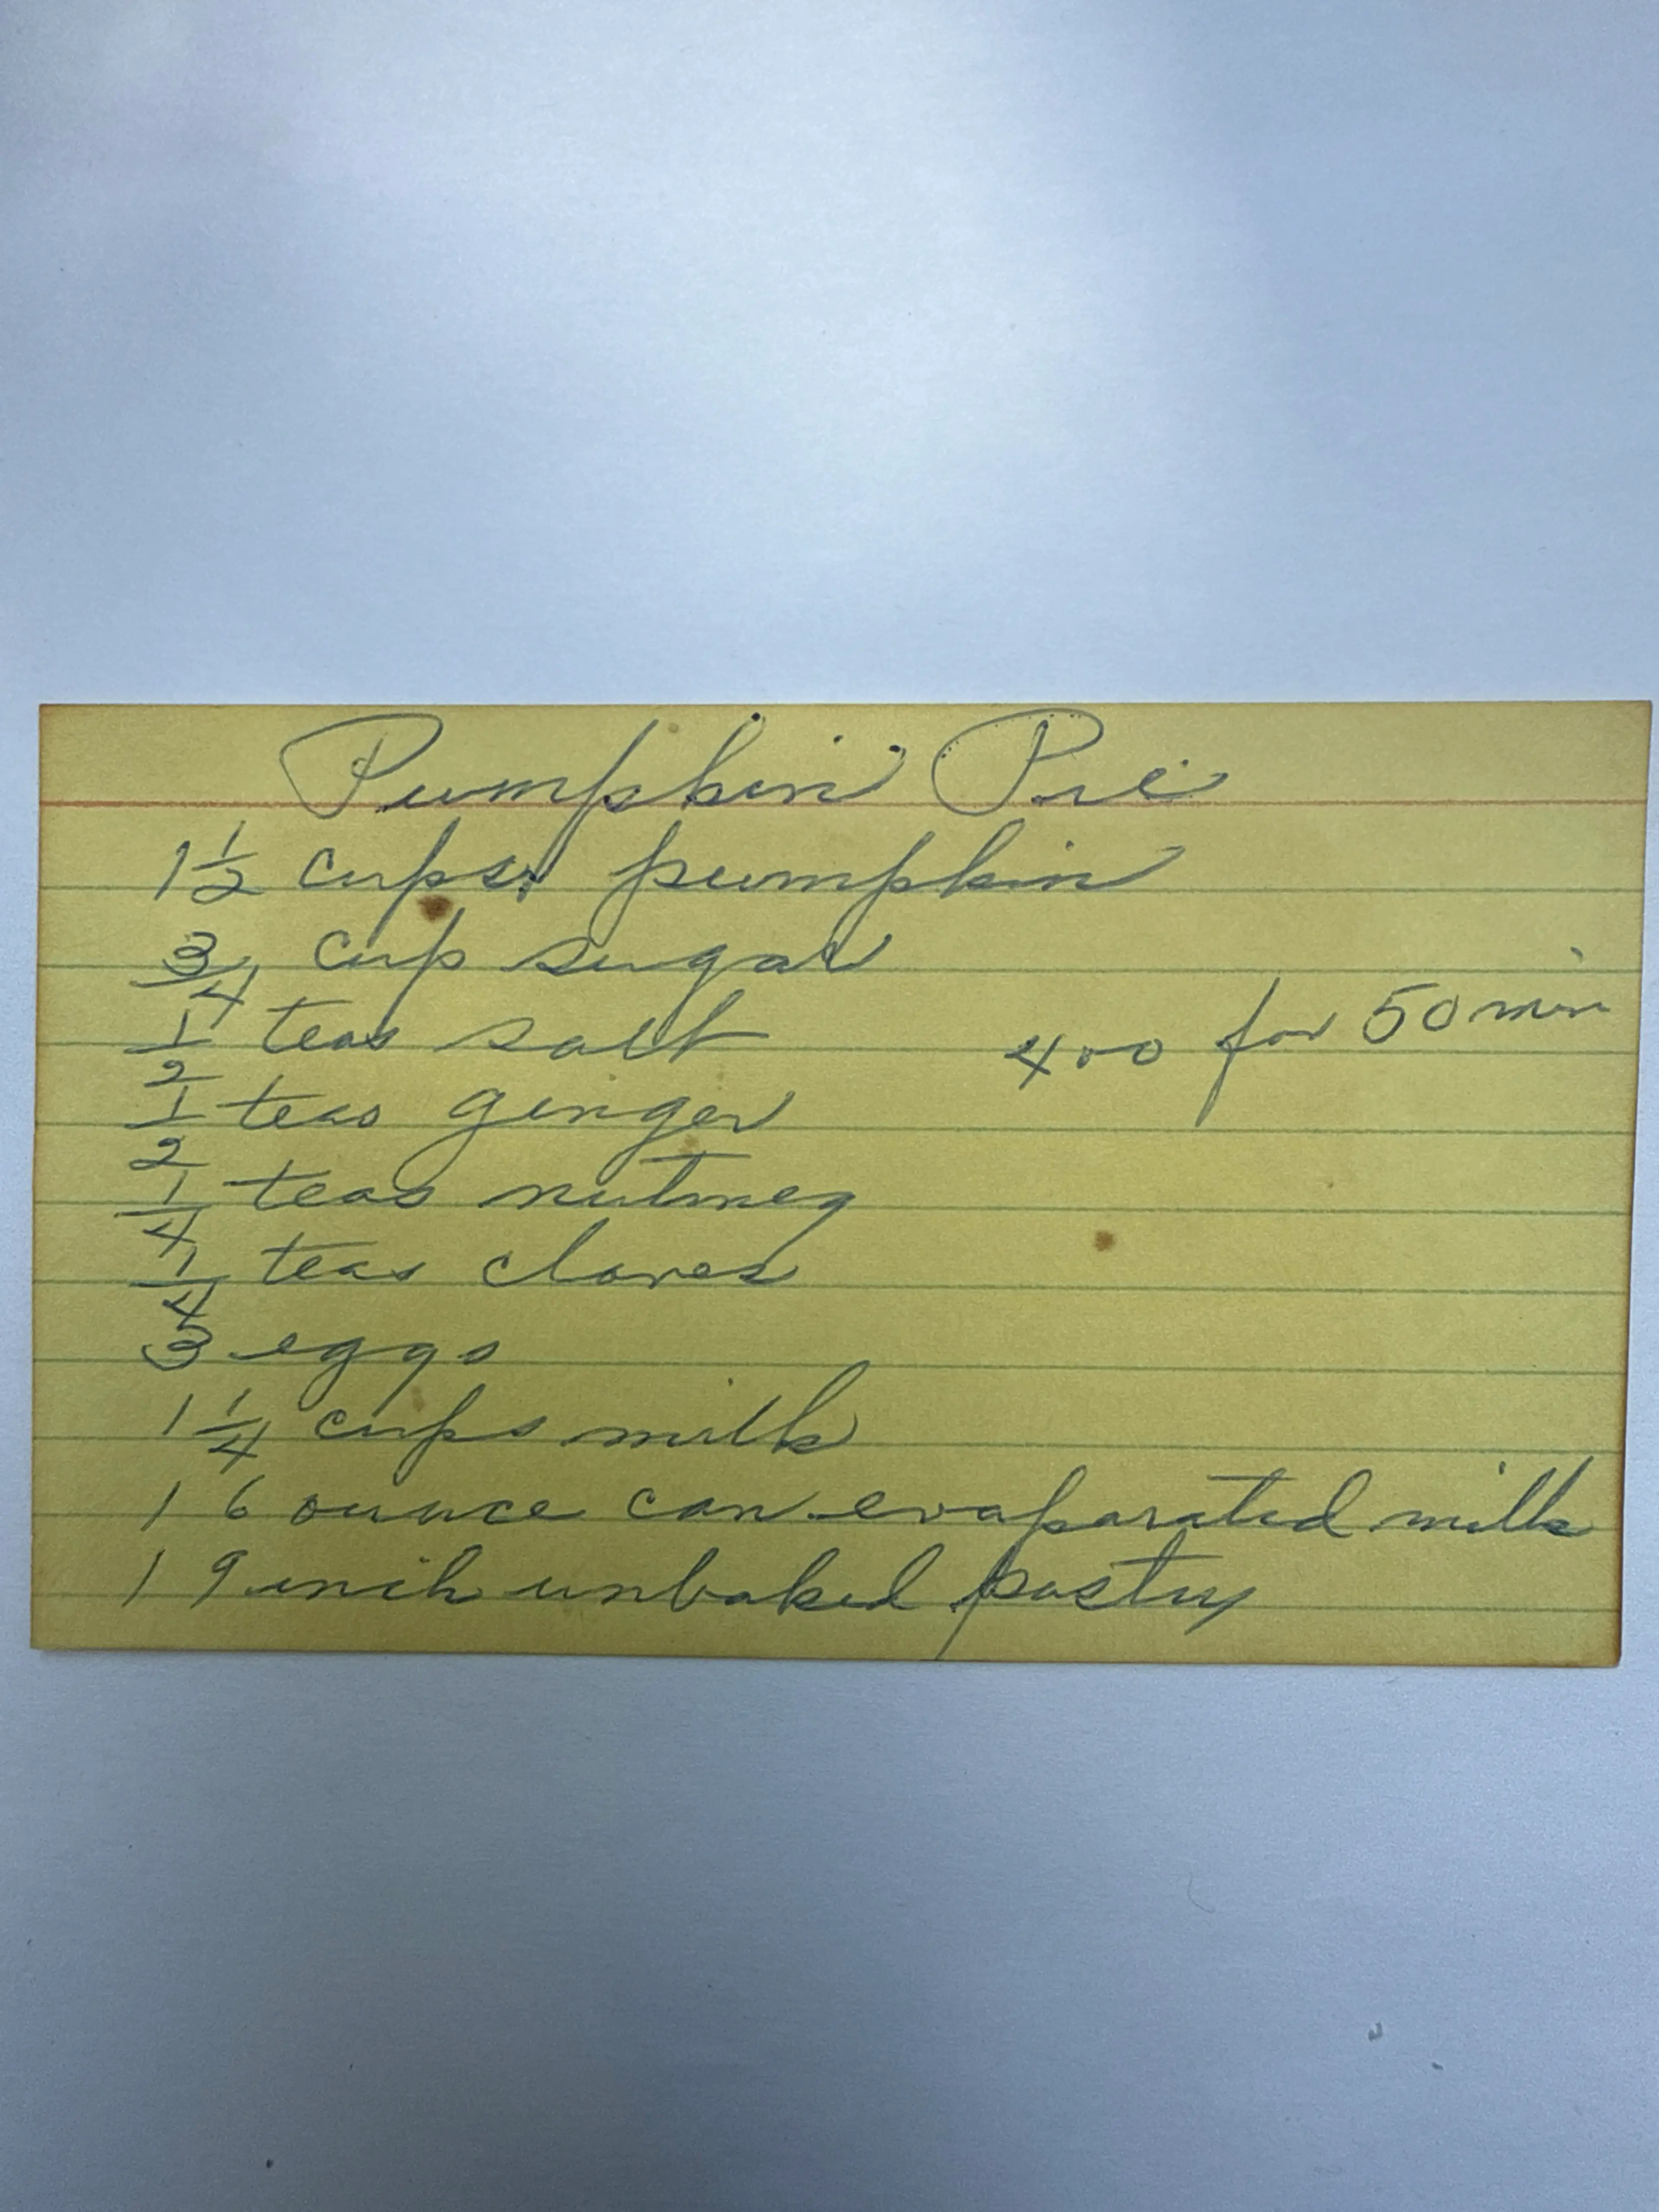 Pumpkin Pie
1 1/2 cups pumpkin
3/4 cup sugar
1/2 teas salt
400 for 50 min
1/2 teas ginger
1/4 teas nutmeg
1/4 teas cloves
3 eggs
1 1/4 cups milk
1 6 ounce can evaporated milk
1 9 inch unbaked pastry